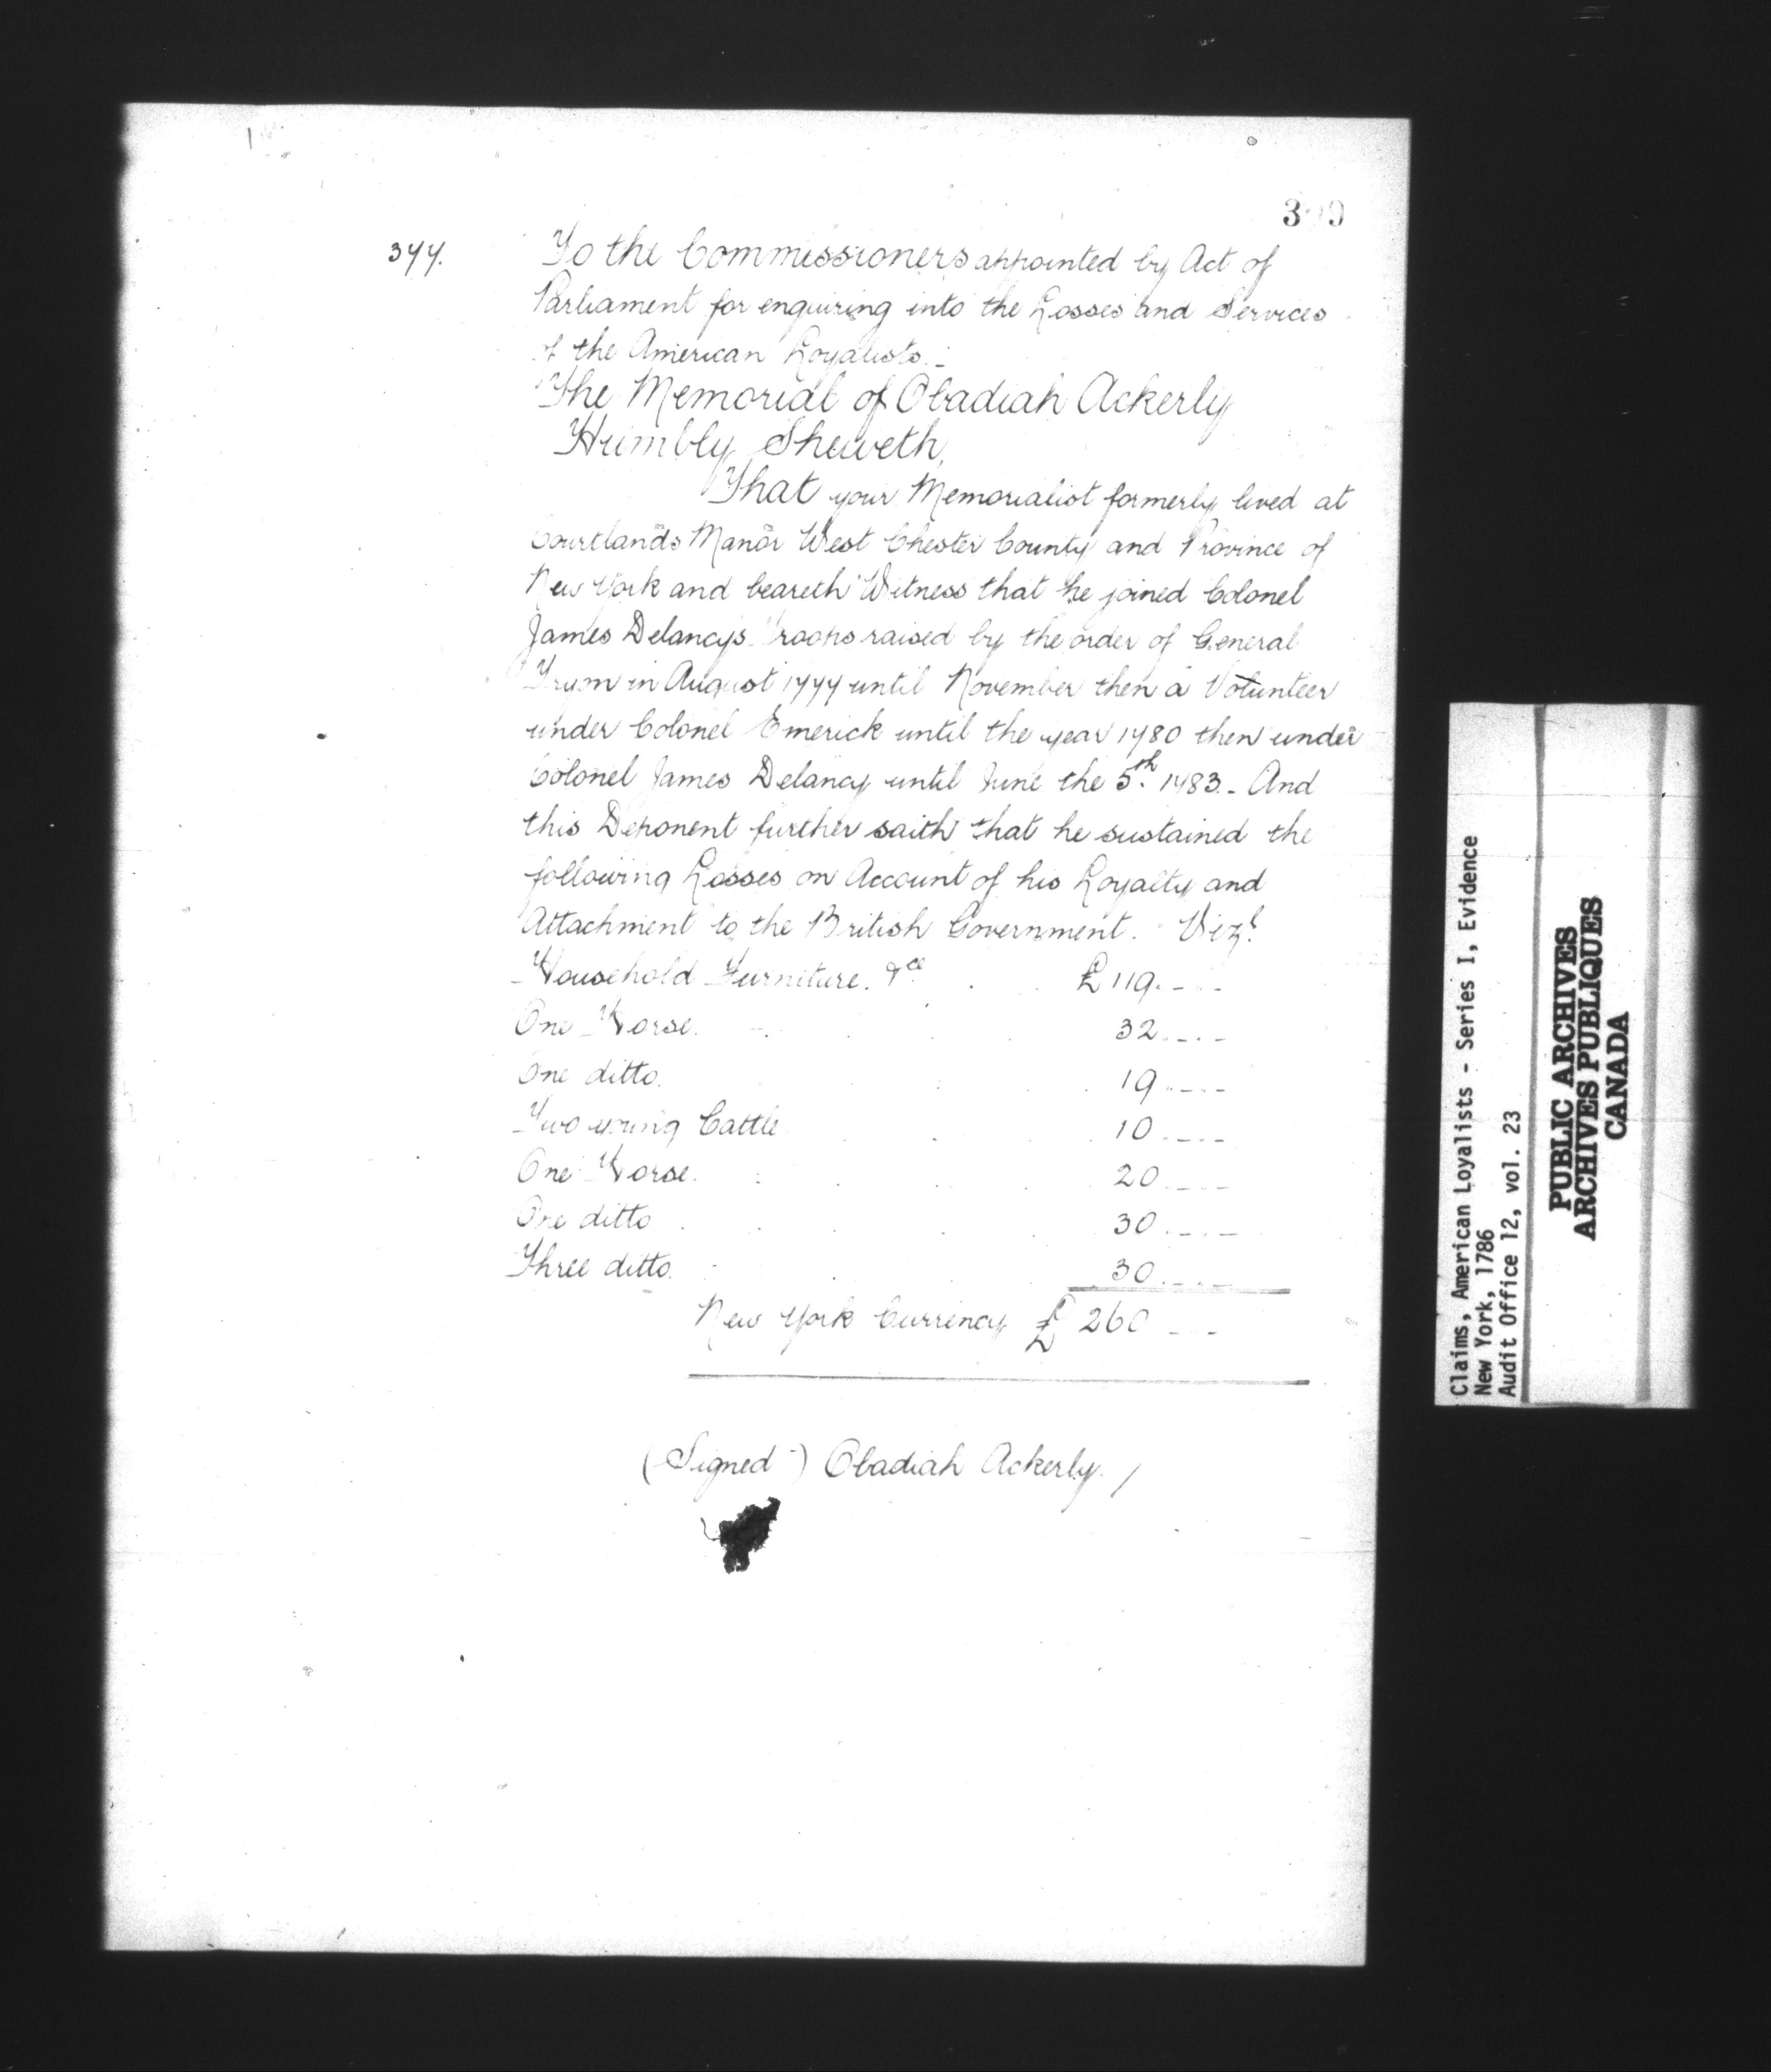 377.
To the Commissioners appointed by Act of
Parliament for enquiring into the Losses and Services
of the American Loyalists._
The Memorial of Obadiah Ackerly
Humbly Sheweth,
That your Memorialist formerly lived at
Courtlands Manor West Chester County and Province of
New York and beareth Witness that he joined Colonel
James Delancys Troops raised by the order of General
Tryon in August 1777 until November then a Volunteer
under Colonel Emerick until the year 1780 then under
Colonel James Delancy until June the 5th. 1783._ And
this Deponent further saith that he sustained the
following Losses on Account of his Loyalty and
Attachment to the British Government. Vizt.
Household Furniture. &ca £119.-.-
One Horse. 32.-.-
One ditto. 19.-.-
Two young Cattle 10.-.-
One Horse. 20.-.-
One ditto 30.-.-
Three ditto. 30.-.-
New York Currency £260 - -
(Signed) Obadiah Ackerly. /
Claims, American Loyalists - Series I, Evidence
New York, 1786
Audit Office 12, vol. 23
PUBLIC ARCHIVES
ARCHIVES PUBLIQUES
CANADA